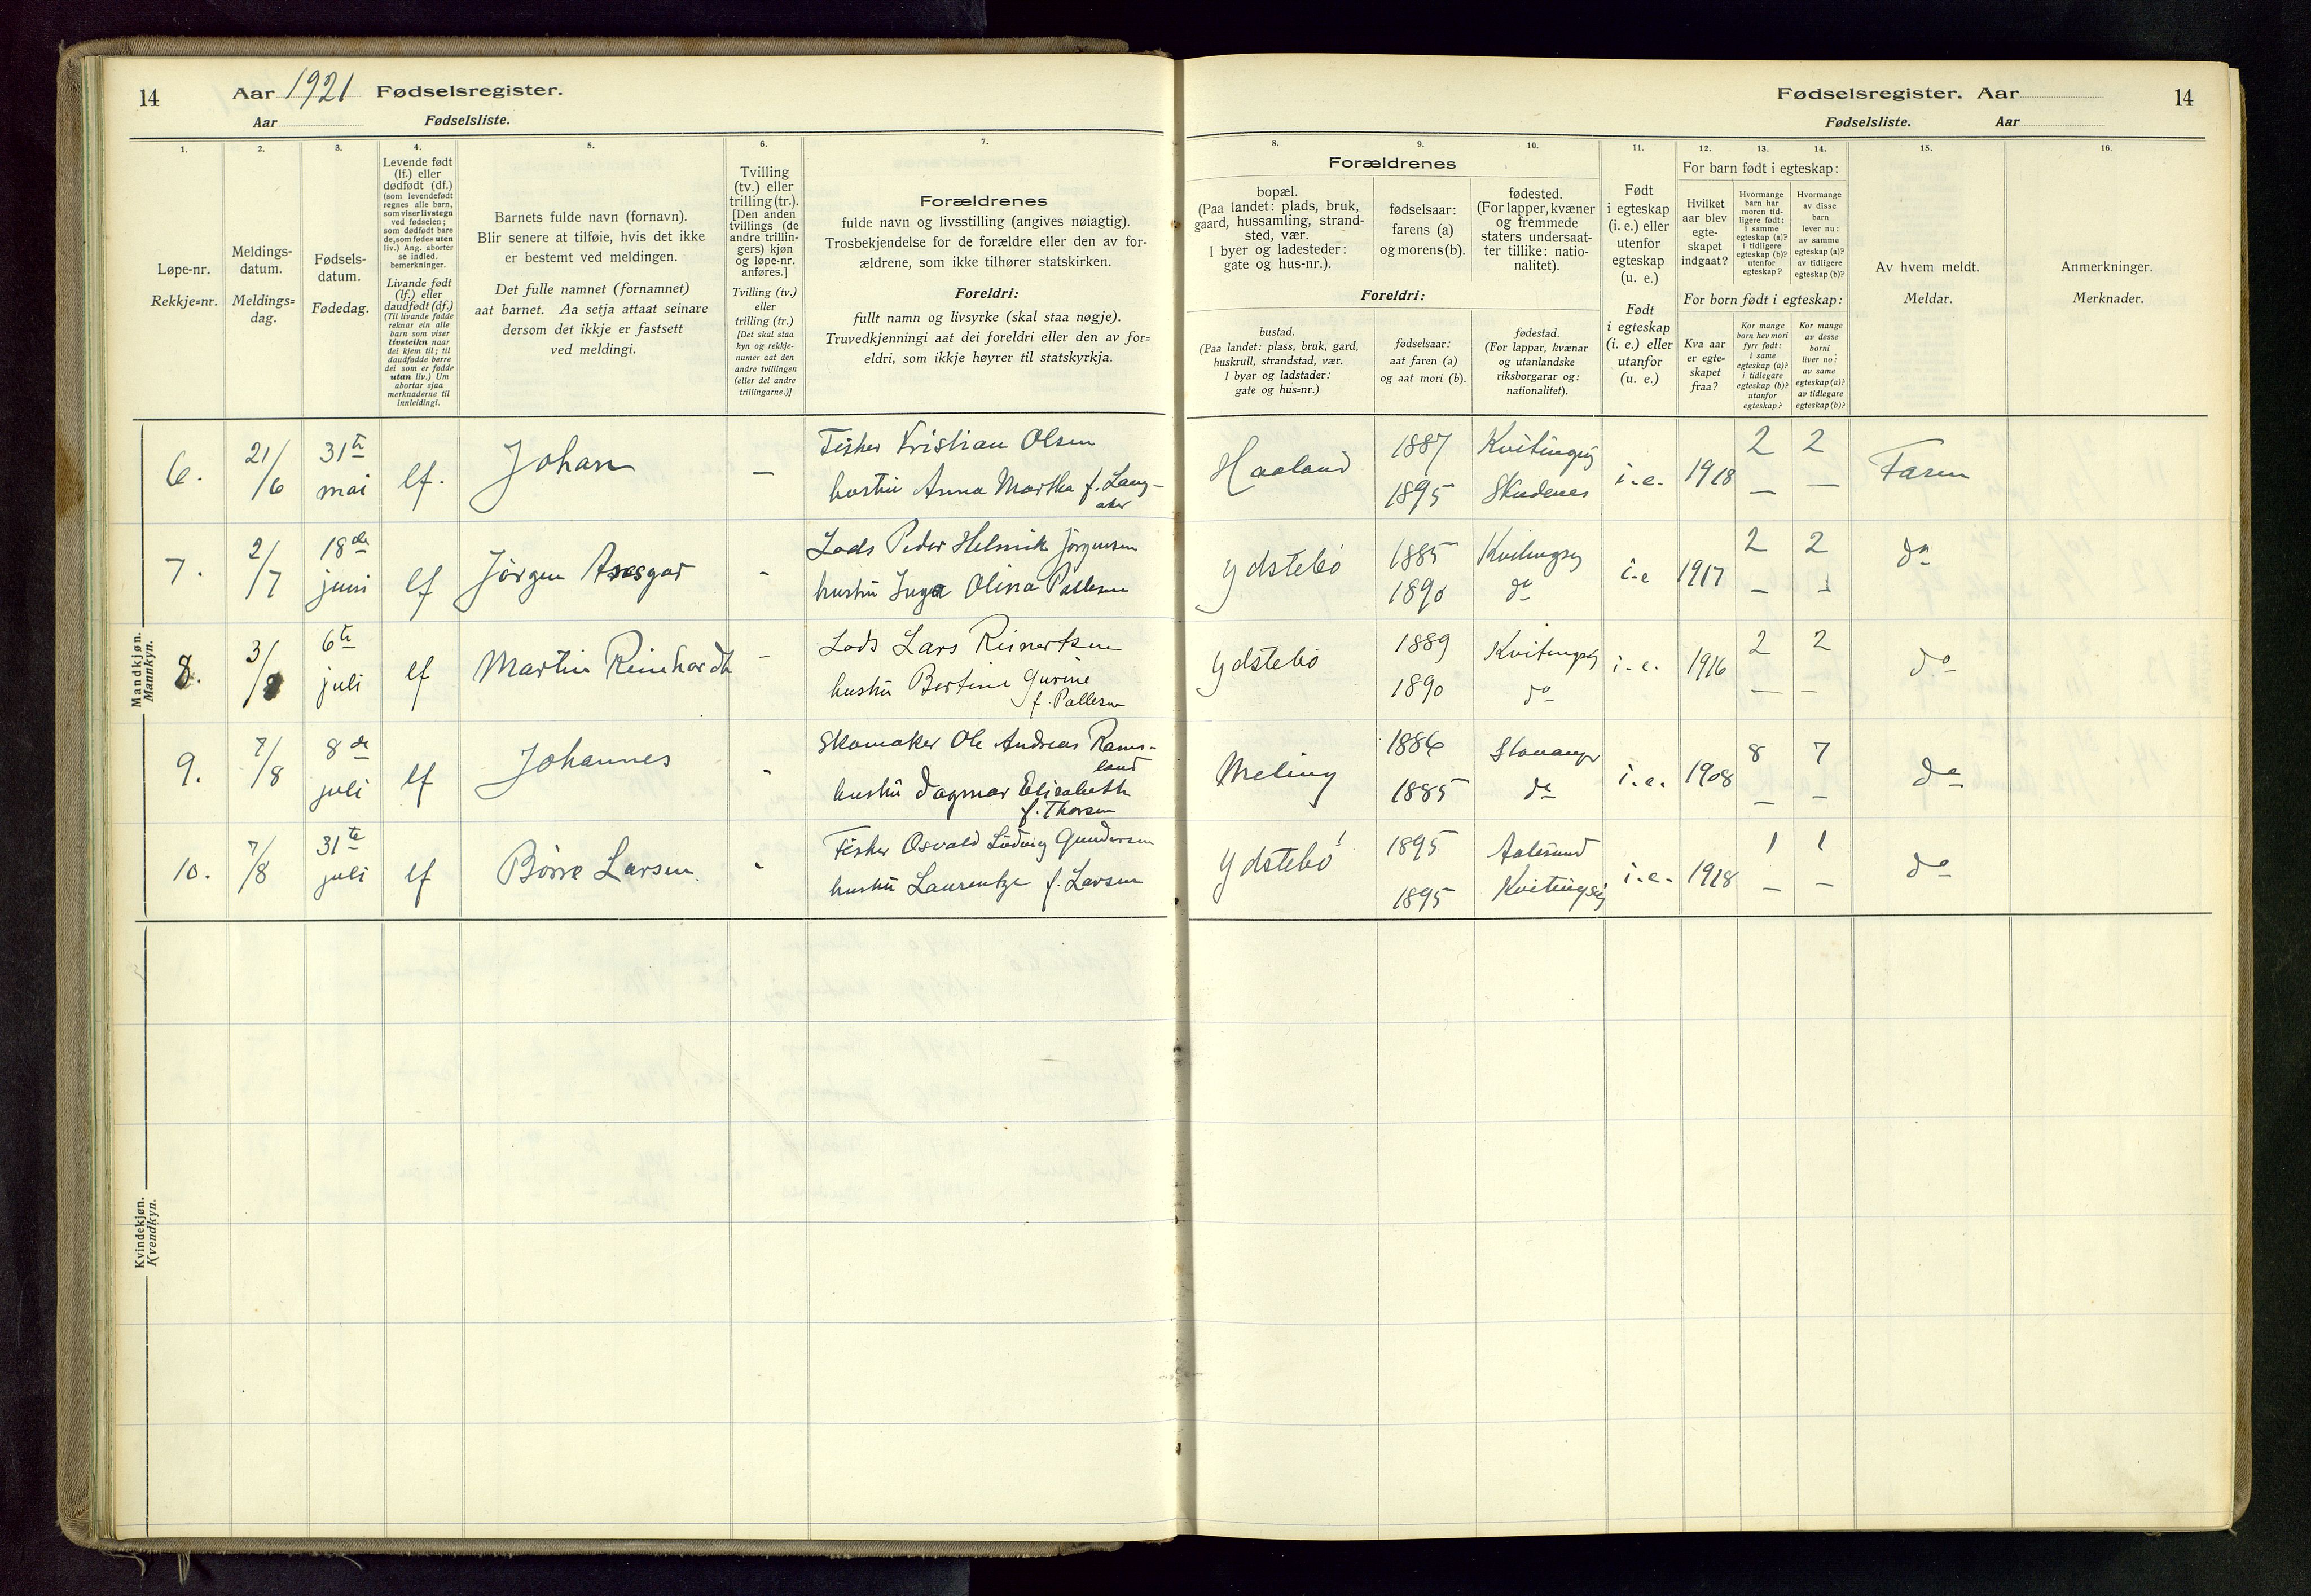 14
Aar 1921 Fødselsregister.
Aar Fødselsliste.
1.
Løpe-nr.
Rekkje=nr.
2.
Meldings-
datum.
Meldings=
dag.
3.
Fødsels-
datum.
Fødedag.
4.
Levende født
(lf.) eller
dødfødt (df.)
(som levendefødt
regnes alle barn,
som viser livstegn
ved fødselen;
som dødfødt bare
de, som fødes uten
liv.) Ang. aborter
se indled.
bemerkninger.
Livande født
(lf.) eller
daudfødt (df.)
(Til livande fødde
reknar ein alle
barn som viser
livsteikn naar
dei kjem til; til
daudfødde berre
dei som er fødde
utan liv.) Um
abortar sjaa
merknaderne til
innleidingi.
5.
Barnets fulde navn (fornavn).
Blir senere at tilføie, hvis det ikke
er bestemt ved meldingen.
Det fulle namnet (fornamnet)
aat barnet. Aa setja attaat seinare
dersom det ikkje er fastsett
ved meldingi.
6.
Tvilling
(tv.) eller
trilling (tr.).
[Den anden
tvillings (de
andre trillin-
gers) kjøn
og løpe-nr.
anføres.]
Tvilling (tv.)
eller
trilling (tr.)
[Det skal staa
kyn og rekkje-
numer aat den
andre tvillingen
(eller dei andre
trillingarne.)]
7.
Forældrenes
fulde navn og livsstilling (angives nøiagtig).
Trosbekjendelse for de forældre eller den av for-
ældrene, som ikke tilhører statskirken.
Foreldri:
fullt namn og livsyrke (skal staa nøgje).
Truvedkjenningi aat dei foreldri eller den av for=
eldri, som ikkje høyrer til statskyrkja.
Fødselsregister. Aar 14
Fødselsliste. Aar
8.
9.
10.
Forældrenes
bopæl.
(Paa landet: plads, bruk,
gaard, hussamling, strand-
sted, vær.
I byer og ladesteder:
gate og hus-nr.).
fødselsaar:
farens (a)
og morens (b).
fødested.
(For lapper, kvæner
og fremmede
staters undersaat-
ter tillike: natio-
nalitet).
Foreldri:
bustad.
(Paa landet: plass, bruk, gard,
huskrull, strandstad, vær.
I byar og ladstader:
gate og hus=nr.)
fødselsaar:
aat faren (a)
og aat mori (b).
fødestad.
(For lappar, kvænar
og utanlandske
riksborgarar og:
nationalitet).
11.
Født
i egteskap
(i. e.) eller
utenfor
egteskap
(u. e.)
Født
i egteskap
(i. e.) eller
utanfor
(u. e.)
12.
13.
14.
For barn født i egteskap:
Hvilket
aar blev
egte-
skapet
indgaat?
Hvormange
barn har
moren tid-
ligere født:
i samme
egteskap (a)?
i tidligere
egteskap (b)?
utenfor
egteskap?
Hvormange
av disse
barn
lever nu:
av samme
egteskap (a)?
av tidligere
egteskap (b)?
For born født i egteskap:
Kva aar
er egte=
skapet
fraa?
Kor mange
born hev mori
fyrr født:
i same
egteskap (a)?
i tidlegare
egteskap (b)?
utanfor
egteskap?
Kor mange
av desse
borni
liver no:
av same
egteskap (a)?
av tidlegare
egteskap (b)?
15.
Av hvem meldt.
Meldar.
16.
Anmerkninger.
Merknader.
Mandkjøn.
Mannkyn.
6. 21/6 31te mai lf. Johan —
Fisker Kristian Olsen
hustru Anna Martha f. Lang-
aker
Haaland 1887 Kvitingsøy i.e. 1918 2 2 Faren
1895 Skudenes — —
7. 2/7 18de juni lf Jørgen Ansgar -
Lods Peder Helmik Jørgensen
hustru Inga Olina Pallesen
Ydstebø 1885 Kvitingsøy i.e 1917 2 2 do
1890 do — -
8. 3/8 6te juli lf Martin Reinhardt —
Lods Lars Reinertsen
hustru Bertine Gurine
f. Pallesen
Ydstebø 1889 Kvitingsøy i.e. 1916 2 2 do
1890 do — —
9. 7/8 8de juli lf Johannes -
Skomaker Ole Andreas Rams-
land
hustru Dagmar Elisabeth
f. Thorsen
Meling 1886 Stavanger i.e. 1908 8 7 do
1885 do — —
10. 7/8 31te juli lf Børre Larsen. -
Fisker Osvald Ludvig Gundersen
hustru Laurentze f. Larsen
Ydstebø 1895 Aalesund i.e. 1918 1 1 do
1895 Kvitingsøy — —
Kvindekjøn.
Kvendkyn.